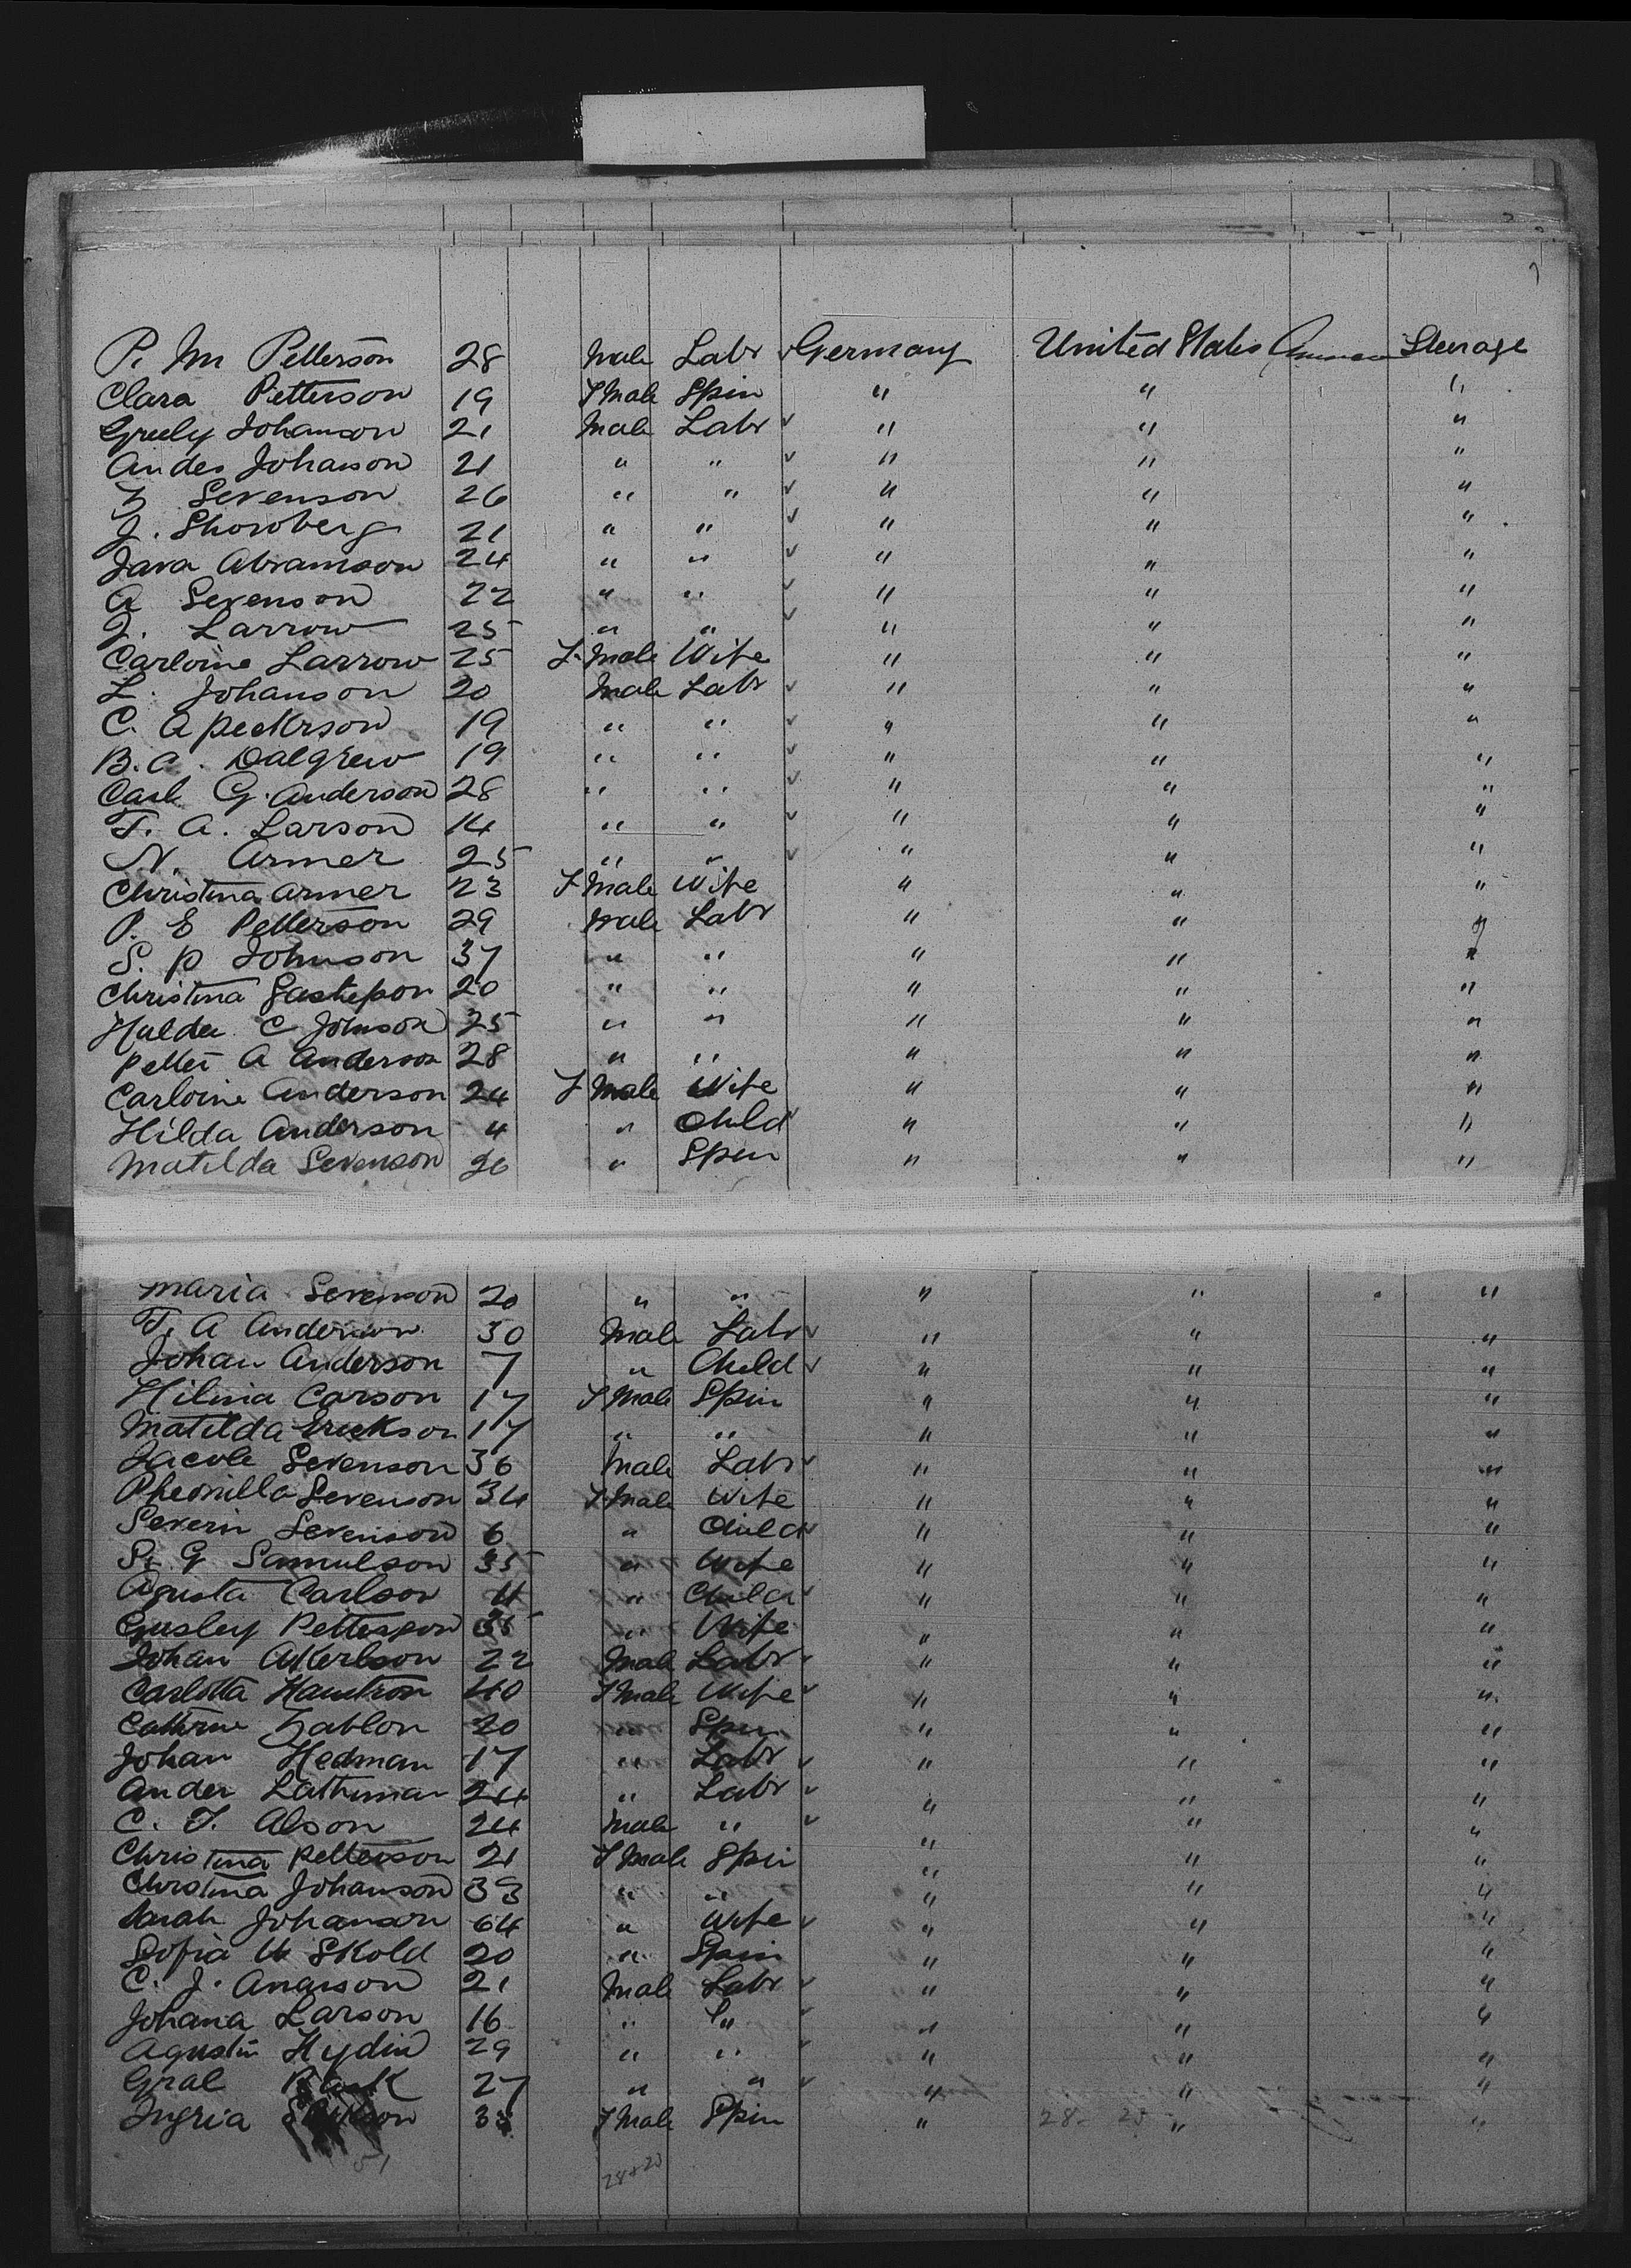 P. M Petterson 28 Male Labr ✓ Germany United States Steerage
Clara Petterson 19 F Male Spin " " "
Greely Johanson 21 Male Labr ✓ " " "
Andes Johanson 21 " " ✓ " " "
Z Sevenson 26 " " ✓ " " "
J. Showberg 21 " " ✓ " " "
Java Abramson 24 " " ✓ " " "
A Sevenson 22 " " ✓ " " "
J. Larrow 25 " " ✓ " " "
Carloine Larrow 25 F Male Wife " " "
L. Johanson 20 Male Labr ✓ " " "
C. A peckrson 19 " " ✓ " " "
B. A. Dalgrew 19 " " ✓ " " "
Carl G. Anderson 28 " " ✓ " " "
T. A. Larson 14 " " ✓ " " "
N. Armer 25 " " ✓ " " "
Christina Armer 23 F Male Wife " " "
P. E Petterson 29 Male Labr " " "
S. P Johnson 37 " " " " "
Christina 20 " " " " "
Hulda C Johnson 25 " " " " "
Petter A Anderson 28 " " " " "
Carloine Anderson 24 F Male Wife " " "
Hilda Anderson 4 " Child ✓ " " "
Matilda Sevenson 26 " Spin " " "
Maria Sevenson 20 " " " " "
T. A Anderson 30 Male Labr ✓ " " "
Johan Anderson 7 " Child ✓ " " "
Hilmia Carson 17 F Male Spin " " "
Matilda Erickson 17 " " " " "
Jacole Sevenson 36 Male Labr ✓ " " "
Pheonilla Sevenson 34 F Male Wife " " "
Severin Sevenson 6 " Child ✓ " " "
S. G Samulson 35 " Wife " " "
Agusta Carlson 11 " Child ✓ " " "
Gusley Petterson 35 " Wife " " "
Johan Akerlson 22 Male Labr ✓ " " "
Carlotta 40 F Male Wife ✓ " " "
Cathrine Zablon 20 " Spin " " "
Johan Hedman 17 " Labr ✓ " " "
Ander Lathuman 24 " Labr ✓ " " "
C. F. Alson 24 Male " ✓ " " "
Christina Petterson 21 F Male Spin " " "
Christina Johanson 33 " " " " "
Sarah Johanson 64 " Wife ✓ " " "
Sofia Skold 20 " Spin " " "
C. J. Anarson 21 Male Labr ✓ " " "
Johana Larson 16 " L" ✓ " " "
Agustin Hydin 29 " " ✓ " " "
Gral 27 " " ✓ " " "
Ingria 33 F Male Spin " 28 - 23 " "
51 28 + 23